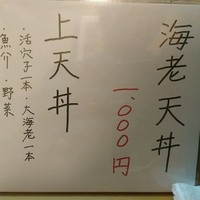 海老天丼
一、〇〇〇円
上天丼
・活穴子一本・大海老一本
・魚介・野菜